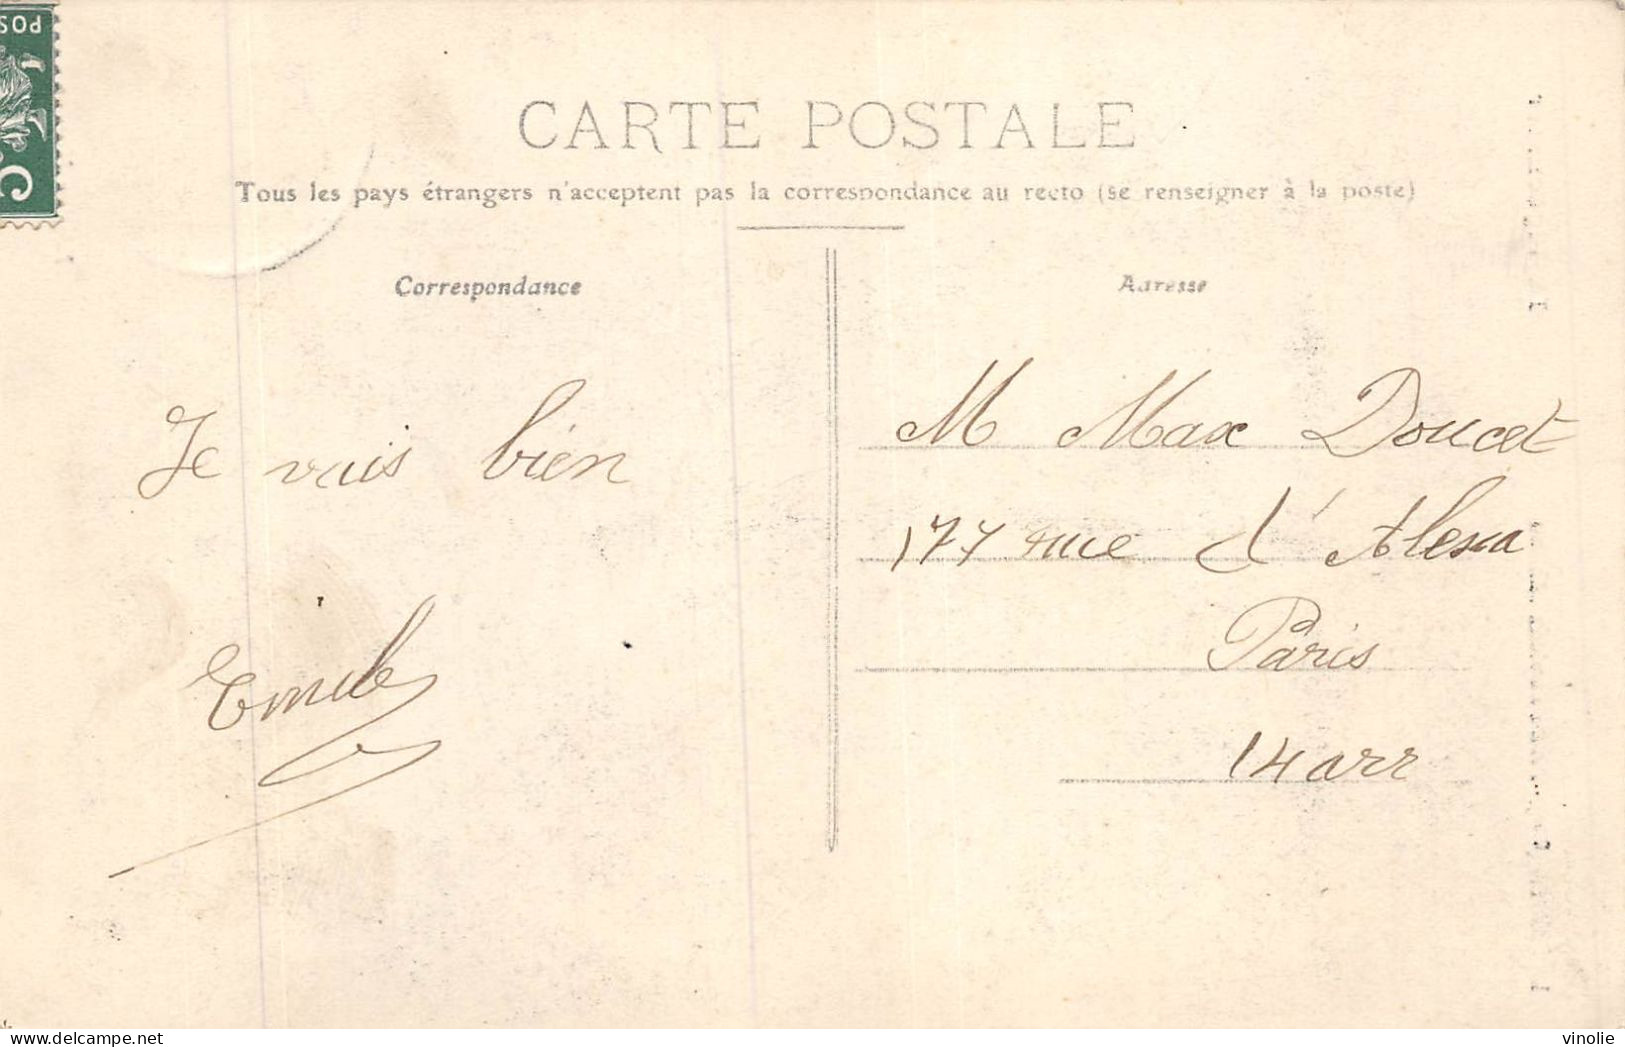 POS
CARTE POSTALE
Tous les pays étrangers n'acceptent pas la correspondance au recto (se renseigner à la poste)
Correspondance
Adresse
Je vais bien
Emile
M Max Doucet
177 rue d'Alesia
Paris
14 arr
delcampe.net
vinolie